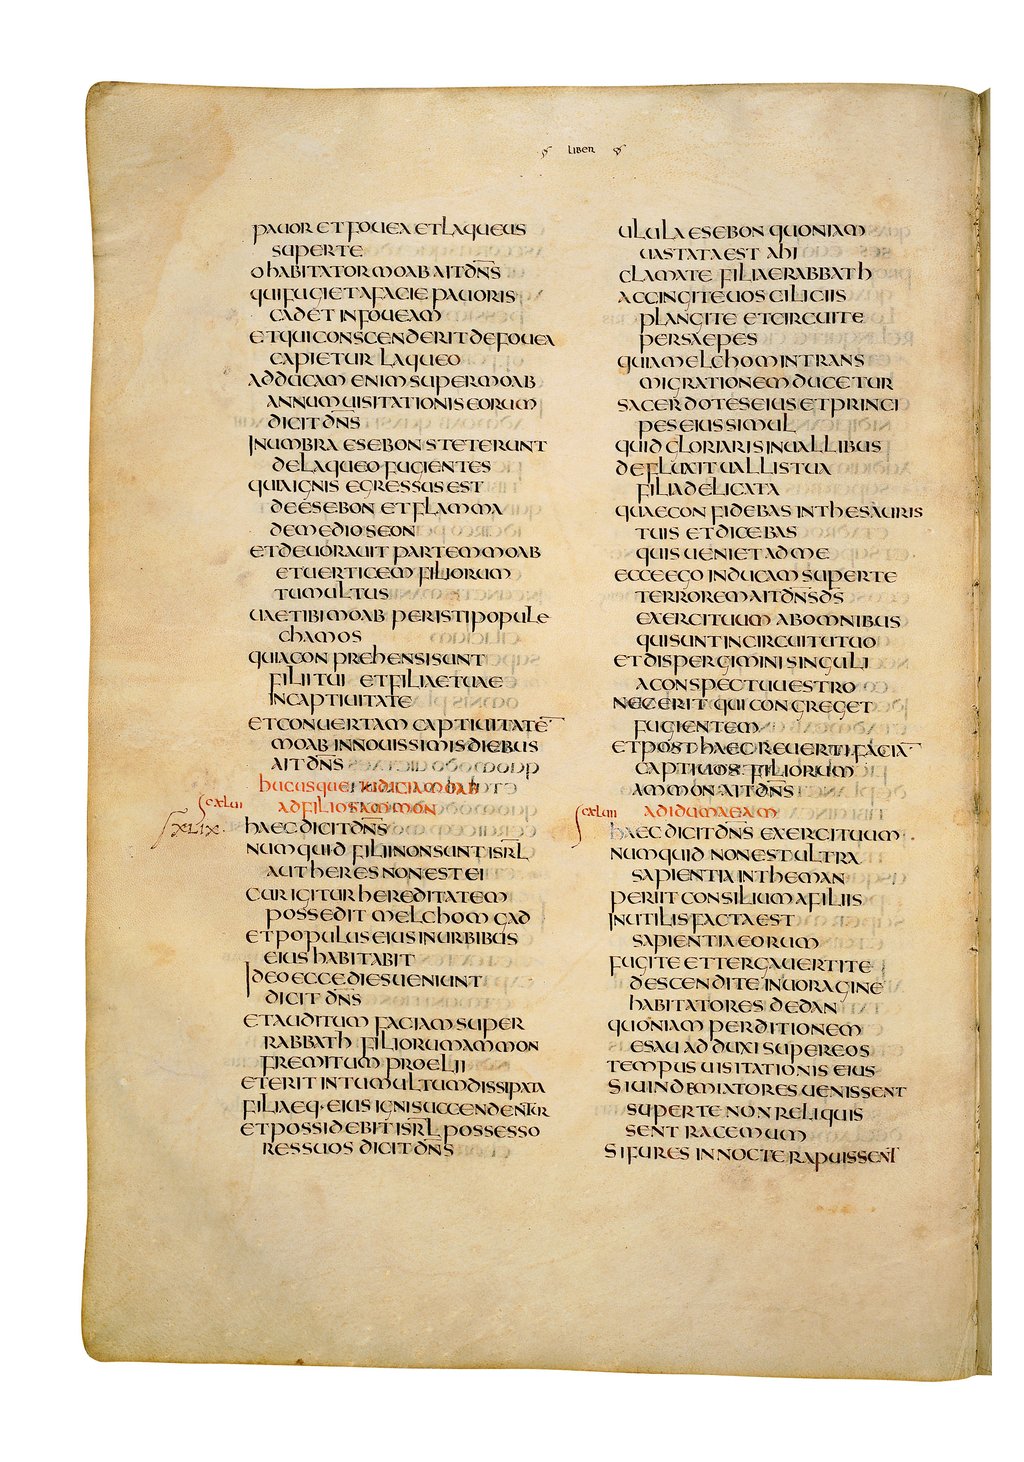 LIBER
PAUOR ET FOUEA ET LAQUEUS
SUPER TE
O HABITATOR MOAB AIT DN̄S
QUI FUGIET A FACIE PAUORIS
CADET IN FOUEAM
ET QUI CONSCENDERIT DE FOUEA
CAPIETUR LAQUEO
ADDUCAM ENIM SUPER MOAB
ANNUM UISITATIONIS EORUM
DICIT DN̄S
IN UMBRA ESEBON STETERUNT
DE LAQUEO FUGIENTES
QUIA IGNIS EGRESSUS EST
DE ESEBON ET FLAMMA
DE MEDIO SEON
ET DEUORAUIT PARTEM MOAB
ET UERTICEM FILIORUM
TUMULTUS
UAE TIBI MOAB PERISTI POPULE
CHAMOS
QUIA CONPREHENSI SUNT
FILII TUI ET FILIAE TUAE
IN CAPTIUITATE
ET CONUERTAM CAPTIUITATĒ
MOAB IN NOUISSIMIS DIEBUS
AIT DN̄S
HUCUSQUE IUDICIA MOAB
CXLUI
AD FILIOS AMMON
XLIX.
HAEC DICIT DN̄S
NUMQUID FILII NON SUNT ISR̄L
AUT HERES NON EST EI
CUR IGITUR HEREDITATEM
POSSEDIT MELCHOM GAD
ET POPULUS EIUS IN URBIBUS
EIUS HABITABIT
IDEO ECCE DIES UENIUNT
DICIT DN̄S
ET AUDITUM FACIAM SUPER
RABBATH FILIORUM AMMON
FREMITUM PROELII
ET ERIT IN TUMULTUM DISSIPATA
FILIAEQ· EIUS IGNI SUCCENDENTUR
ET POSSIDEBIT ISR̄L POSSESSO
RES SUOS DICIT DN̄S
ULULA ESEBON QUONIAM
UASTATA EST AHI
CLAMATE FILIAE RABBATH
ACCINGITE UOS CILICIIS
PLANGITE ET CIRCUITE
PER SAEPES
QUIA MELCHOM IN TRANS
MIGRATIONEM DUCETUR
SACERDOTES EIUS ET PRINCI
PES EIUS SIMUL
QUID GLORIARIS IN UALLIBUS
DEFLUXIT UALLIS TUA
FILIA DELICATA
QUAE CONFIDEBAS IN THESAURIS
TUIS ET DICEBAS
QUIS UENIET AD ME
ECCE EGO INDUCAM SUPER TE
TERROREM AIT DN̄S DS̄
EXERCITUUM AB OMNIBUS
QUI SUNT IN CIRCUITU TUO
ET DISPERGIMINI SINGULI
A CONSPECTU UESTRO
NEC ERIT QUI CONGREGET
FUGIENTEM
ET POST HAEC REUERTI FACIA̅
CAPTIUOS FILIORUM
AMMON AIT DN̄S
CXLUII
AD IDUMAEAM
HAEC DICIT DN̄S EXERCITUUM
NUMQUID NON EST ULTRA
SAPIENTIA IN THEMAN
PERIIT CONSILIUM A FILIIS
INUTILIS FACTA EST
SAPIENTIA EORUM
FUGITE ET TERGA UERTITE
DESCENDITE IN UORAGINE
HABITATORES DEDAN
QUONIAM PERDITIONEM
ESAU ADDUXI SUPER EOS
TEMPUS UISITATIONIS EIUS
SI UINDEMIATORES UENISSENT
SUPER TE NON RELIQUIS
SENT RACEMUM
SI FURES IN NOCTE RAPUISSENT